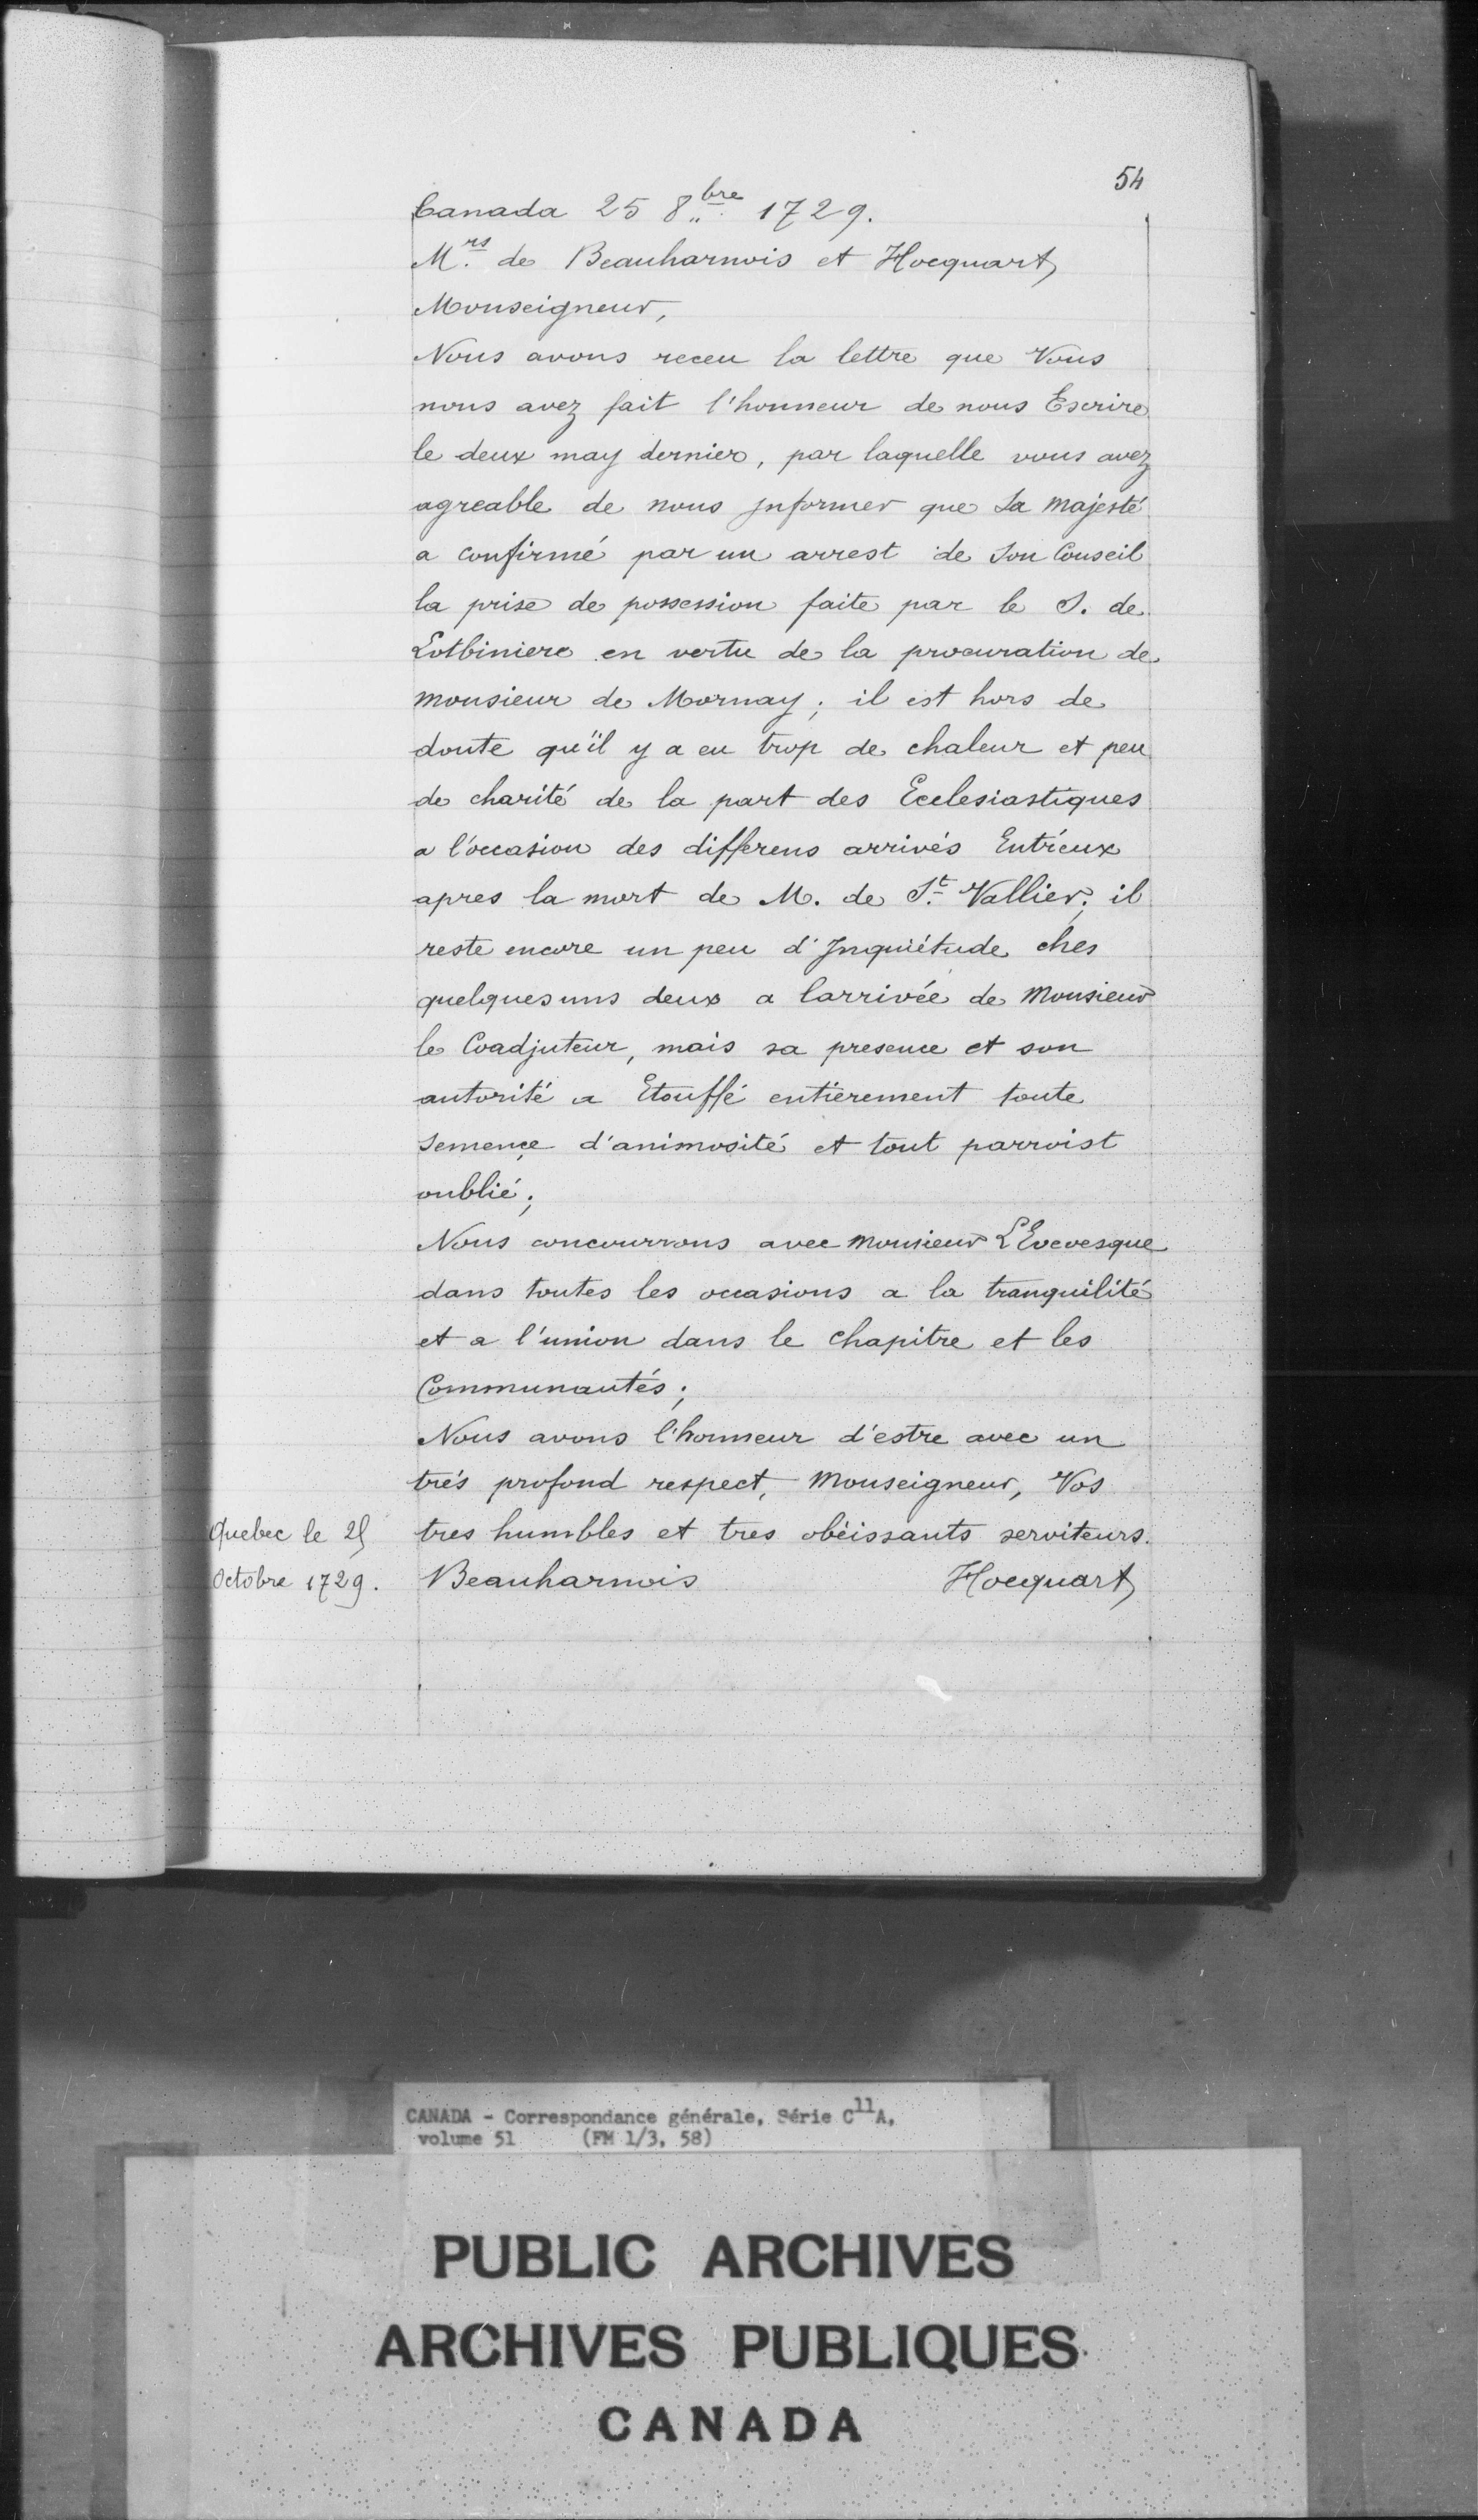 54
Canada 25 8bre 1729.
Mrs de Beauharnois et Hocquart
Monseigneur,
Nous avons receu la lettre que Vous
nous avez fait l'honneur de nous Escrire
le deux may dernier, par laquelle vous avez
agreable de nous Informer que Sa Majesté
a confirmé par un arrest de Son Conseil
la prise de possession faite par le S. de
Lotbiniere en vertu de la procuration de
Monsieur de Mornay; il est hors de
doute qu'il y a eu trop de chaleur et peu
de charité de la part des Ecclesiastiques
a l'occasion des differens arrivés Entr'eux
apres la mort de M. de St Vallier; il
reste encore un peu d'Inquiétude ches
quelquesuns deux a larrivée de Monsieur
le Coadjuteur, mais sa presence et son
autorité a Etouffé entièrement toute
Semençe d'animosité et tout parroist
oublié;
Nous concourrons avec Monsieur L'Evevesque
dans toutes les occasions a la tranquilité
et a l'union dans le Chapitre et les
Communautés;
Nous avons l'honneur d'estre avec un
trés profond respect, Monseigneur, Vos
tres humbles et tres obéissants serviteurs.
Quebec le 25
Octobre 1729.
Beauharnois Hocquart
CANADA - Correspondance générale, Série C11A,
volume 51 (FM 1/3, 58)
PUBLIC ARCHIVES
ARCHIVES PUBLIQUES
CANADA